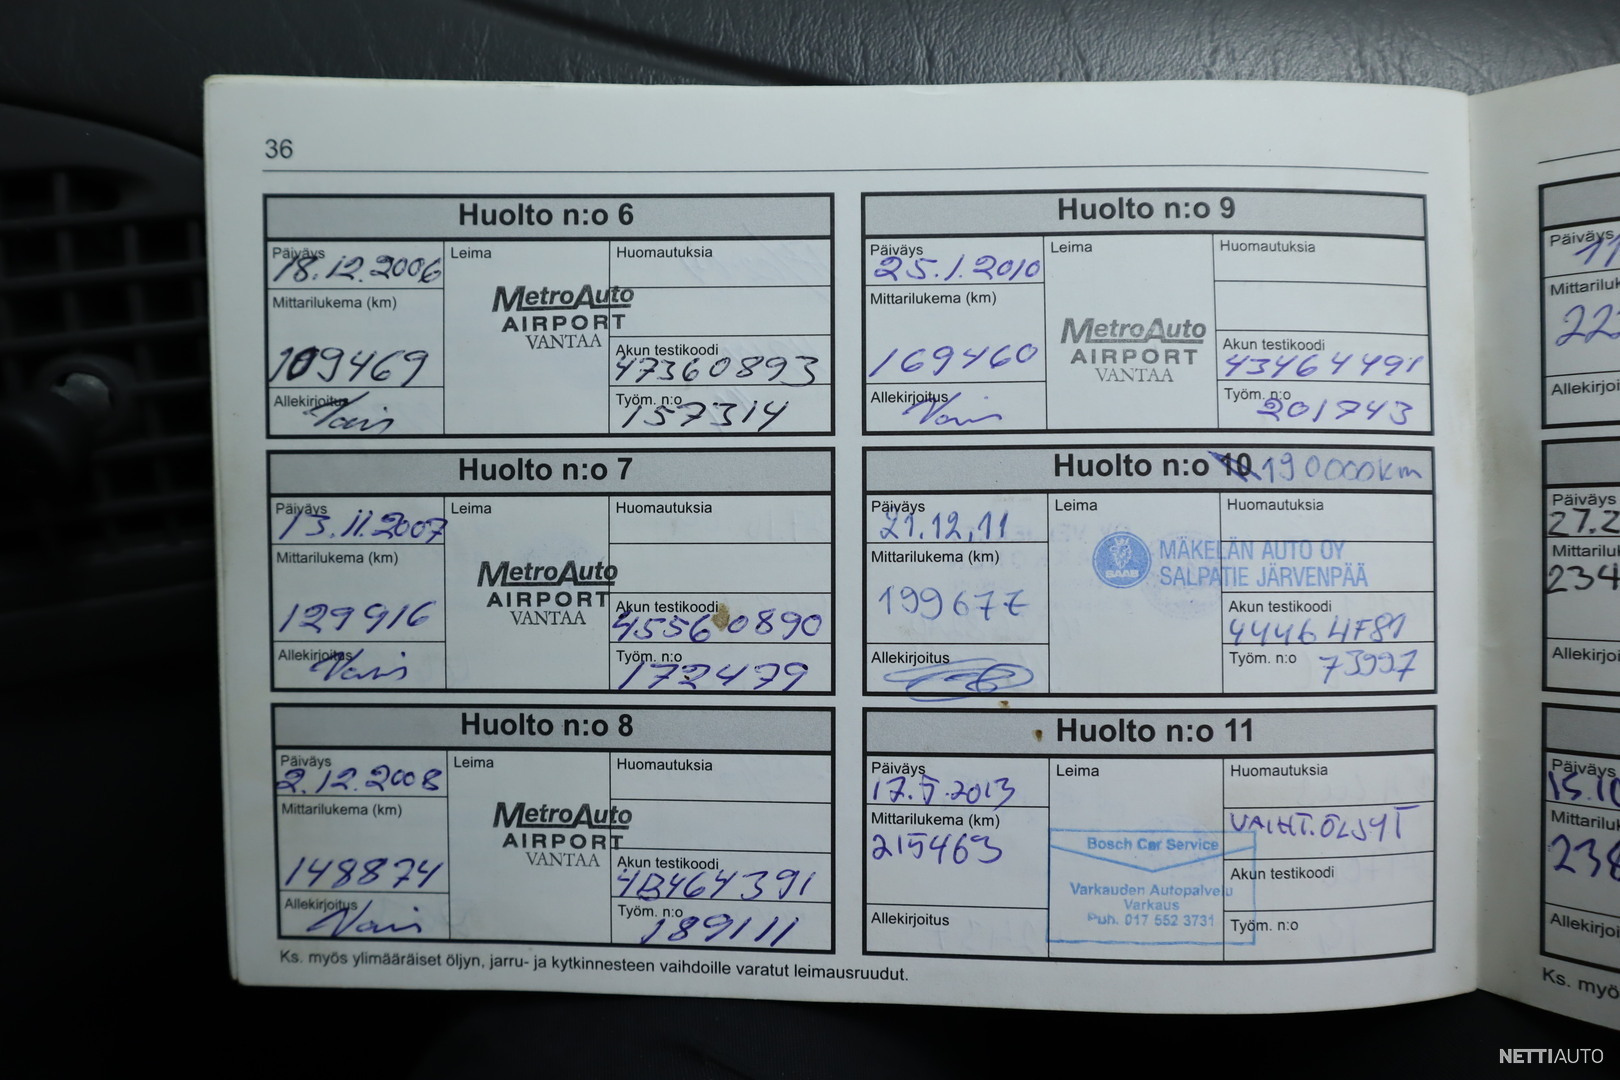 36
Huolto n:o 6
Päiväys
18.12.2006
Leima
Huomautuksia
Mittarilukema (km)
109469
MetroAuto
AIRPORT
VANTAA
Akun testikoodi
47360893
Allekirjoitus
Työm. n:o
157314
Huolto n:o 7
Päiväys
13.11.2007
Leima
Huomautuksia
Mittarilukema (km)
129916
MetroAuto
AIRPORT
VANTAA
Akun testikoodi
45560890
Allekirjoitus
Työm. n:o
172479
Huolto n:o 8
Päiväys
2.12.2008
Leima
Huomautuksia
Mittarilukema (km)
148874
MetroAuto
AIRPORT
VANTAA
Akun testikoodi
4B464391
Allekirjoitus
Työm. n:o
189111
Ks. myös ylimääräiset öljyn, jarru- ja kytkinnesteen vaihdoille varatut leimausruudut.
Huolto n:o 9
Päiväys
25.1.2010
Leima
Huomautuksia
Mittarilukema (km)
169460
MetroAuto
AIRPORT
VANTAA
Akun testikoodi
43464491
Allekirjoitus
Työm. n:o
201743
Huolto n:o 10 190000km
Päiväys
21.12.11
Leima
Huomautuksia
Mittarilukema (km)
SAAB
MÄKELÄN AUTO OY
SALPATIE JÄRVENPÄÄ
Akun testikoodi
44464F81
Allekirjoitus
Työm. n:o 73997
Huolto n:o 11
Päiväys
17.5.2013
Leima
Huomautuksia
VAIHT.ÖLJYT
Mittarilukema (km)
215463
Bosch Car Service
Varkauden Autopalvelu
Varkaus
Puh. 017 552 3731
Akun testikoodi
Allekirjoitus
Työm. n:o
Päiväys
11
Mittariluk
222
Allekirjoi
Päiväys
27.2
Mittarilu
234
Allekirjoi
Päiväys
15.10
Mittariluk
238
Allekirjoi
Ks. myö
NETTIAUTO